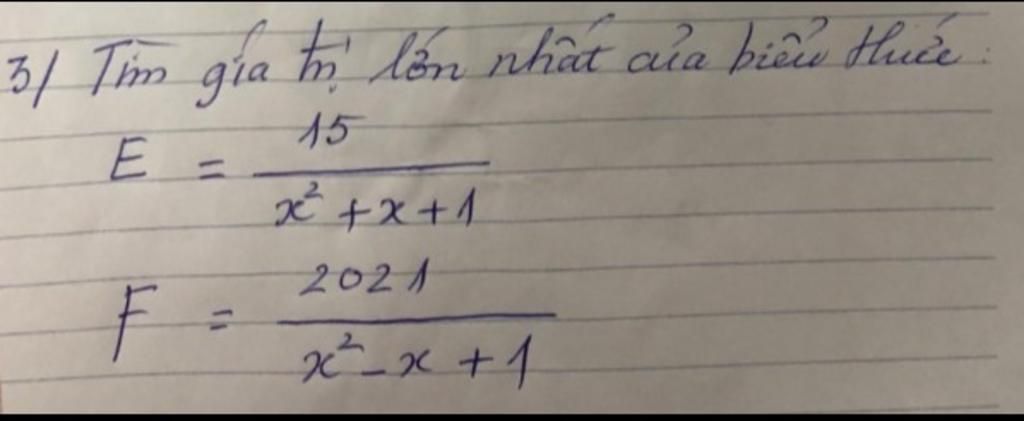 3/ Tìm gía trị lớn nhất của biểu thức:
E = 15 / (x² + x + 1)
F = 2021 / (x² - x + 1)